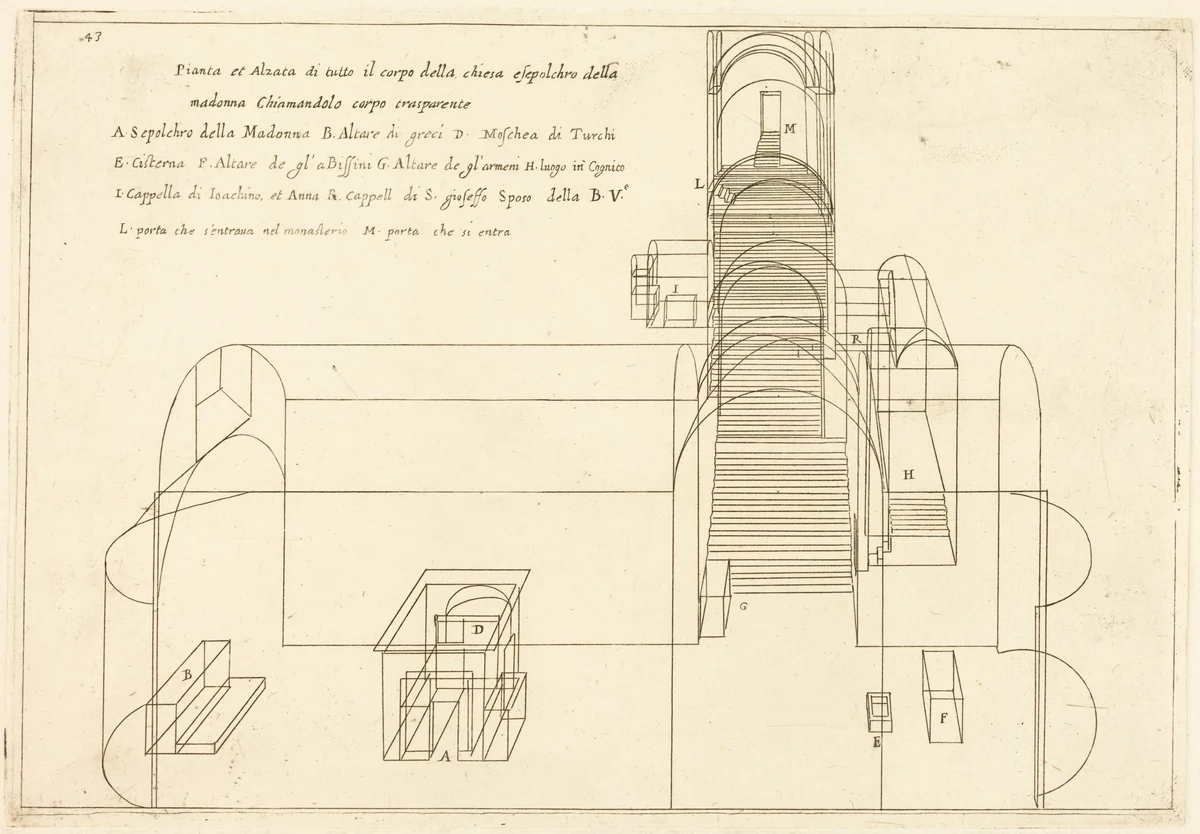 43
Pianta et Alzata di tutto il corpo della chiesa eſepolchro della
madonna Chiamandolo corpo trasparente
A. Sepolchro della Madonna B. Altare di greci D. Moſchea di Turchi
E. Ciſterna F. Altare de gl'aBiſſini G. Altare de gl'armeni H. luogo in Cognito
I. Cappella di Ioachino, et Anna R. Cappell di S. gioſeffo Sposo della B. V.e
L. porta che s'entraua nel monaſlerio M. porta che si entra
M
L
I
R
H
G
D
B
A
E
F